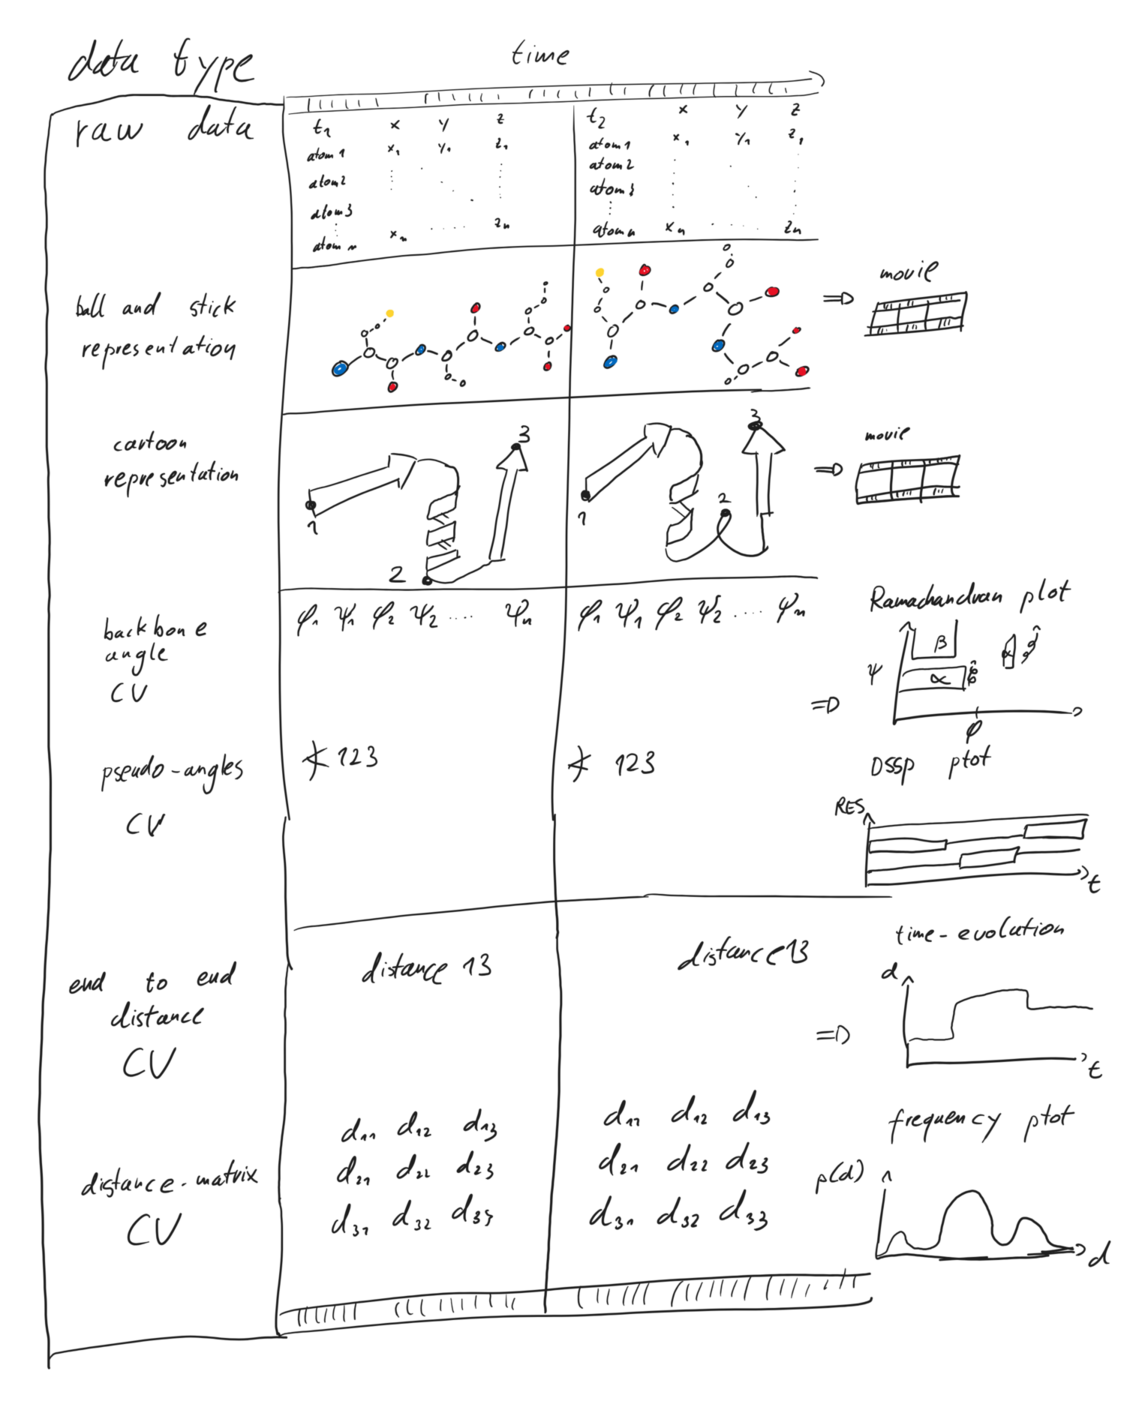 data type
time
raw data
t1 x y z
atom1 x1 y1 z1
atom2
atom3
atom n xn zn
t2 x y z
atom1 x1 y1 z1
atom2
atom3
atom n xn zn
ball and stick
representation
movie
cartoon
representation
1 2 3
1 2 3
movie
backbone
angle
CV
φ1 ψ1 φ2 ψ2 .... ψn
φ1 ψ1 φ2 ψ2 .... ψn
Ramachandran plot
β
α
ψ
φ
pseudo-angles
CV
∡ 123
∡ 123
DSSP plot
RES
t
end to end
distance
CV
distance 13
distance 13
time-evolution
d
t
distance-matrix
CV
d11 d12 d13
d21 d22 d23
d31 d32 d33
d11 d12 d13
d21 d22 d23
d31 d32 d33
frequency plot
p(d)
d